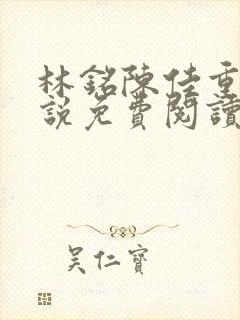 林銘陳佳重
說免費閱讀
吳仁寶